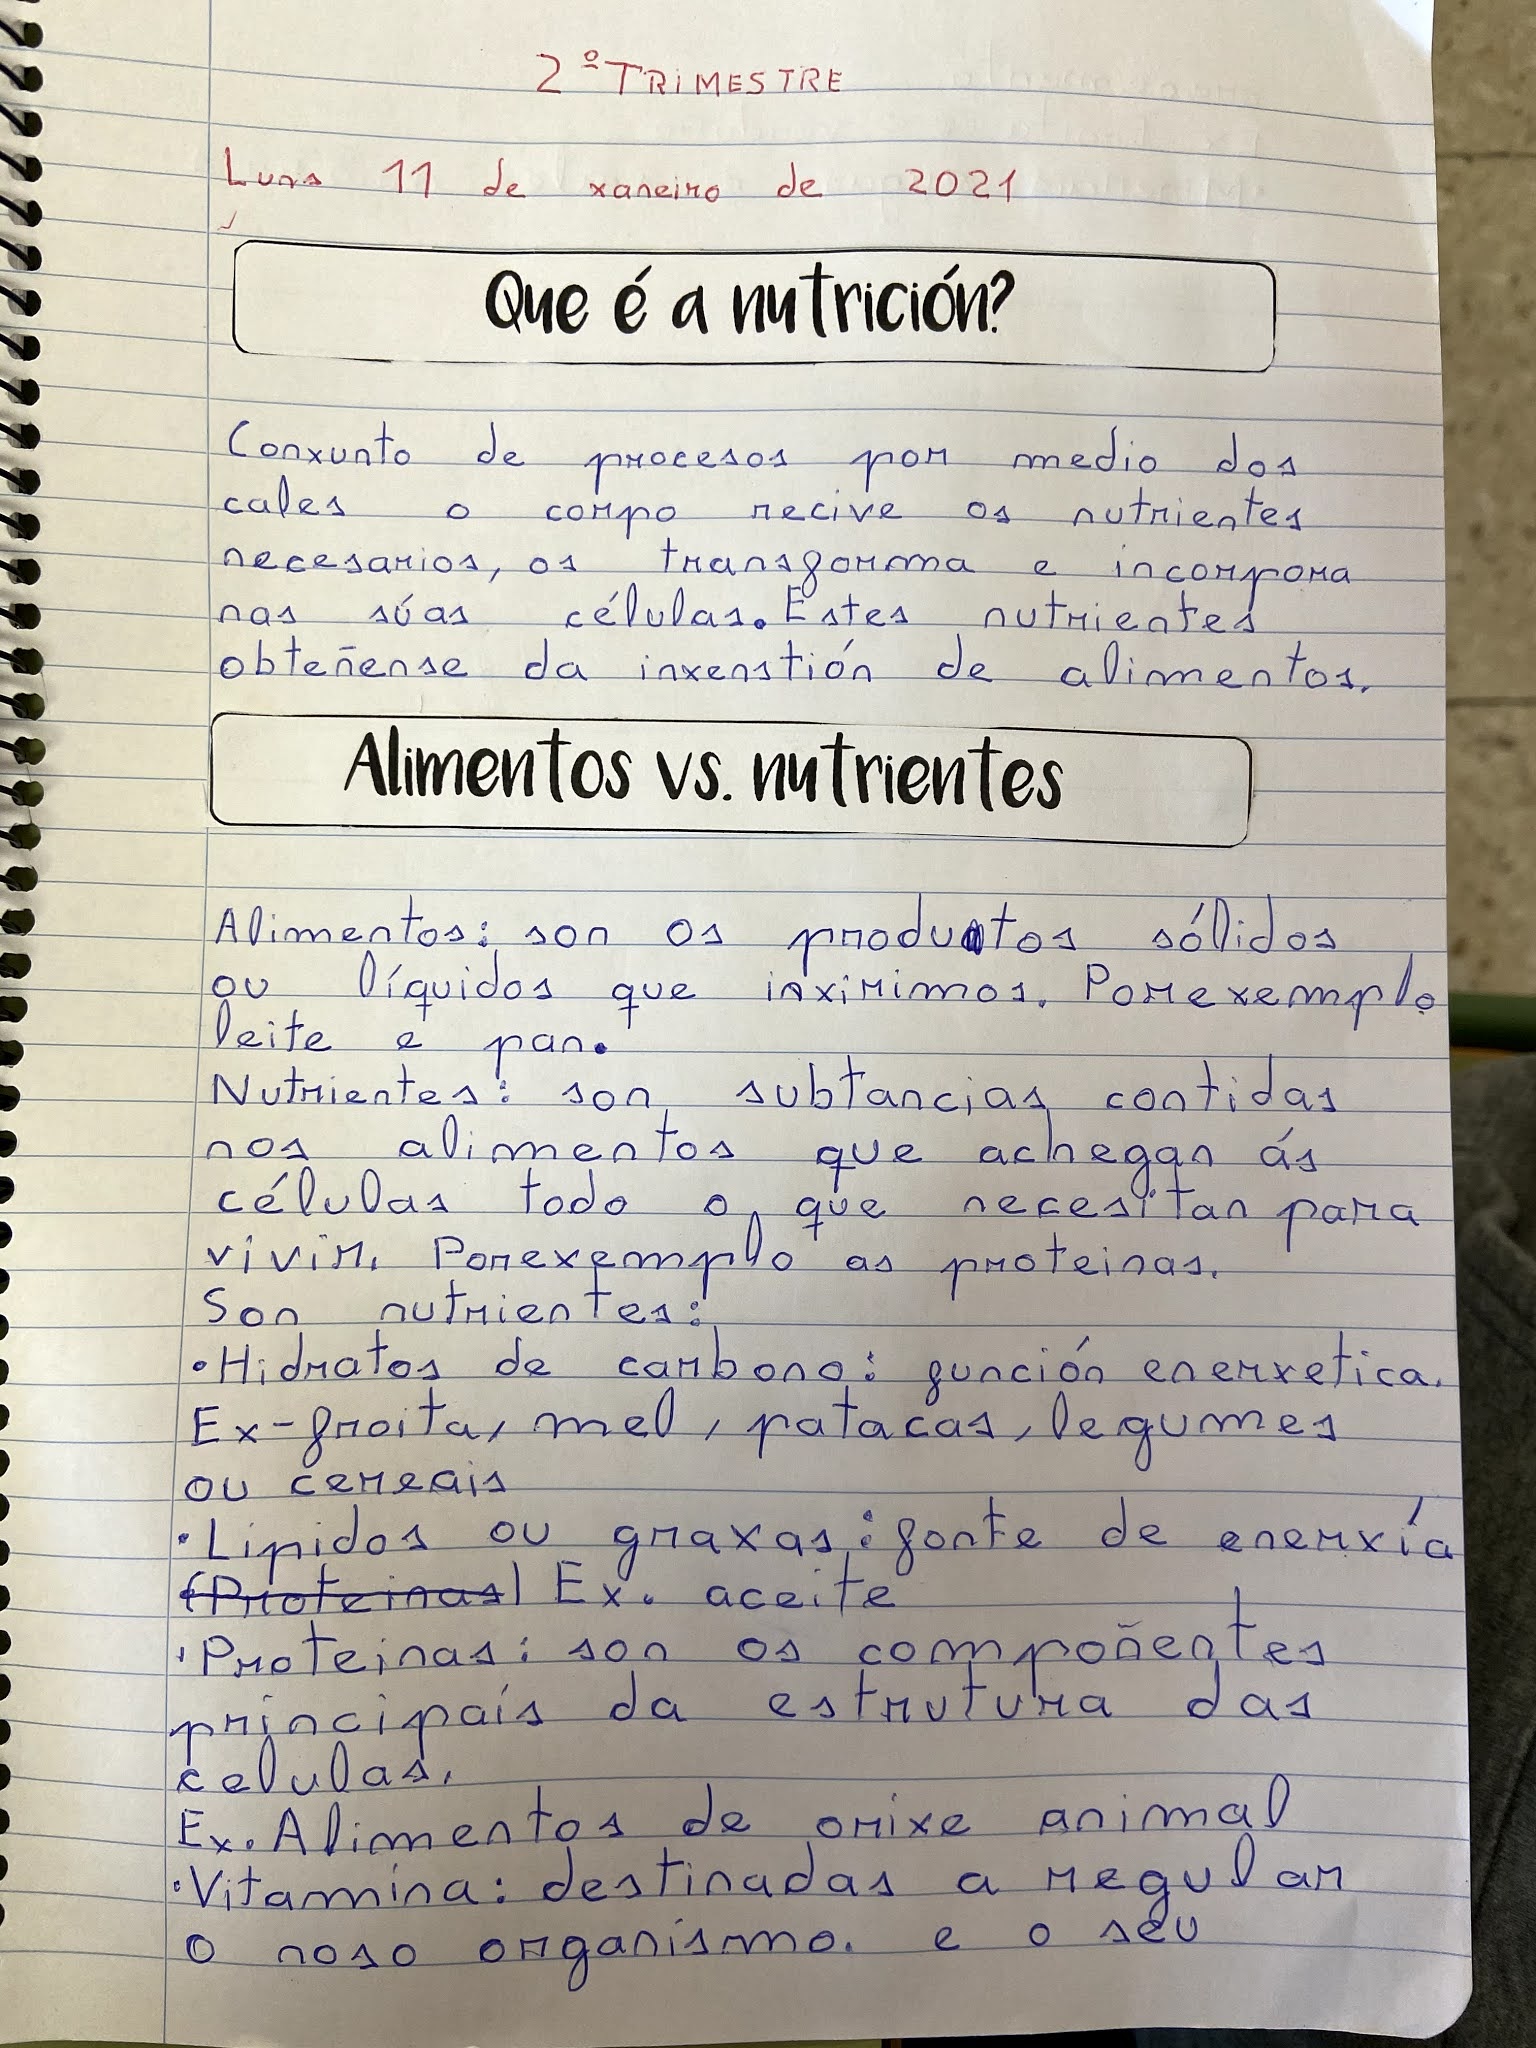 2º TRIMESTRE
Luns 11 de xaneiro de 2021
Que é a nutrición?
Conxunto de procesos por medio dos
cales o corpo recive os nutrientes
necesarios, os transforma e incorpora
nas súas células. Estes nutrientes
obteñense da inxenstión de alimentos.
Alimentos vs. nutrientes
Alimentos: son os produtos sólidos
ou líquidos que inxirimos. Por exemplo
leite e pan.
Nutrientes: son subtancias contidas
nos alimentos que achegan ás
células todo o que necesitan para
vivir. Por exemplo as proteinas.
Son nutrientes:
•Hidratos de carbono: función enerxetica.
Ex-froita, mel, patacas, legumes
ou cereais
•Lipidos ou graxas: fonte de enerxía
(Proteinas) Ex. aceite
•Proteinas: son os compoñentes
principais da estrutura das
celulas.
Ex. Alimentos de orixe animal
•Vitamina: destinadas a regular
o noso organismo. e o seu